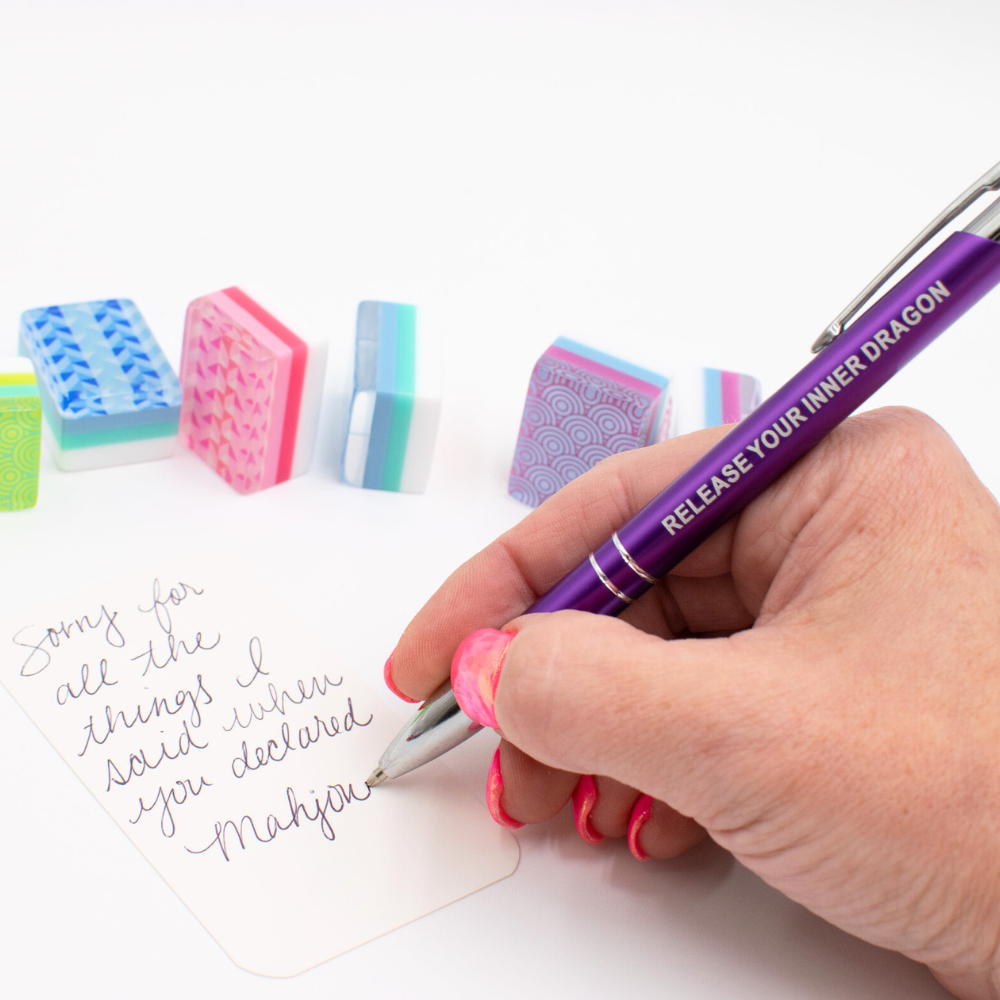 RELEASE YOUR INNER DRAGON
Sorry for
all the
things I
said when
you declared
Mahjon